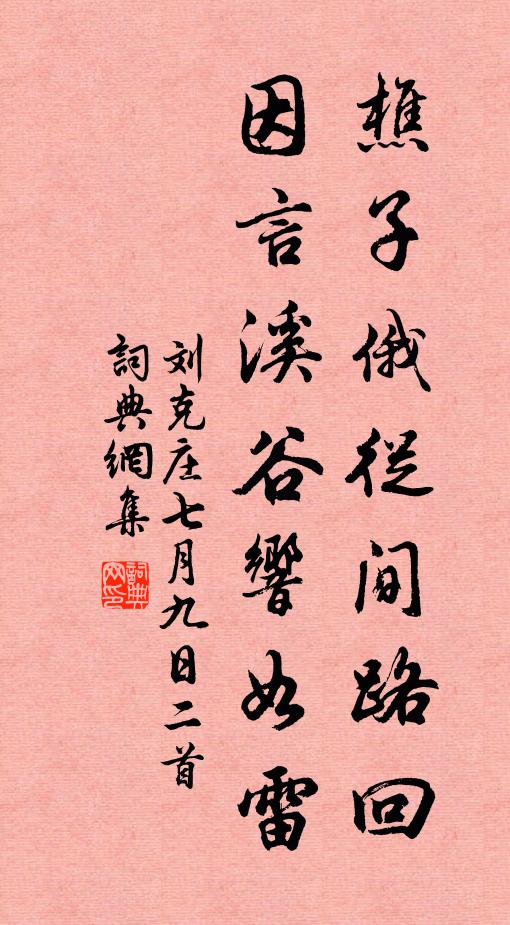 樵子俄從间路回
因言溪谷響如雷
刘克庄七月九日二首
詞典網集
詞典網印